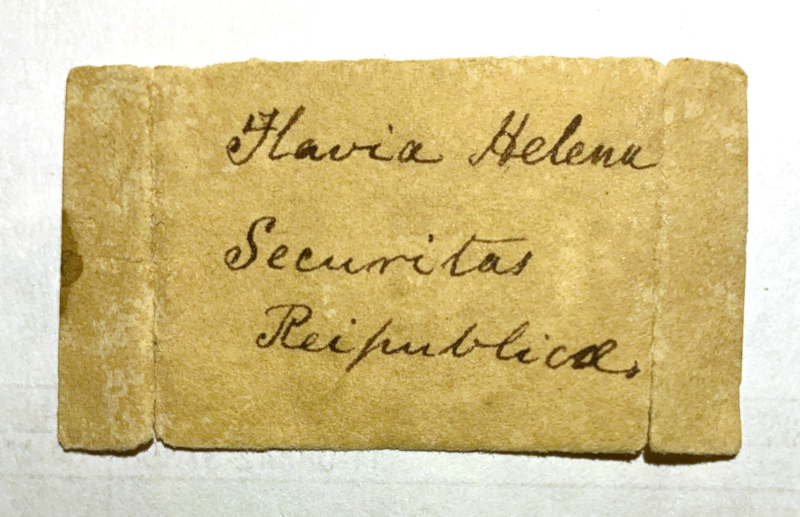 Flavia Helena
Securitas
Reipublicæ.